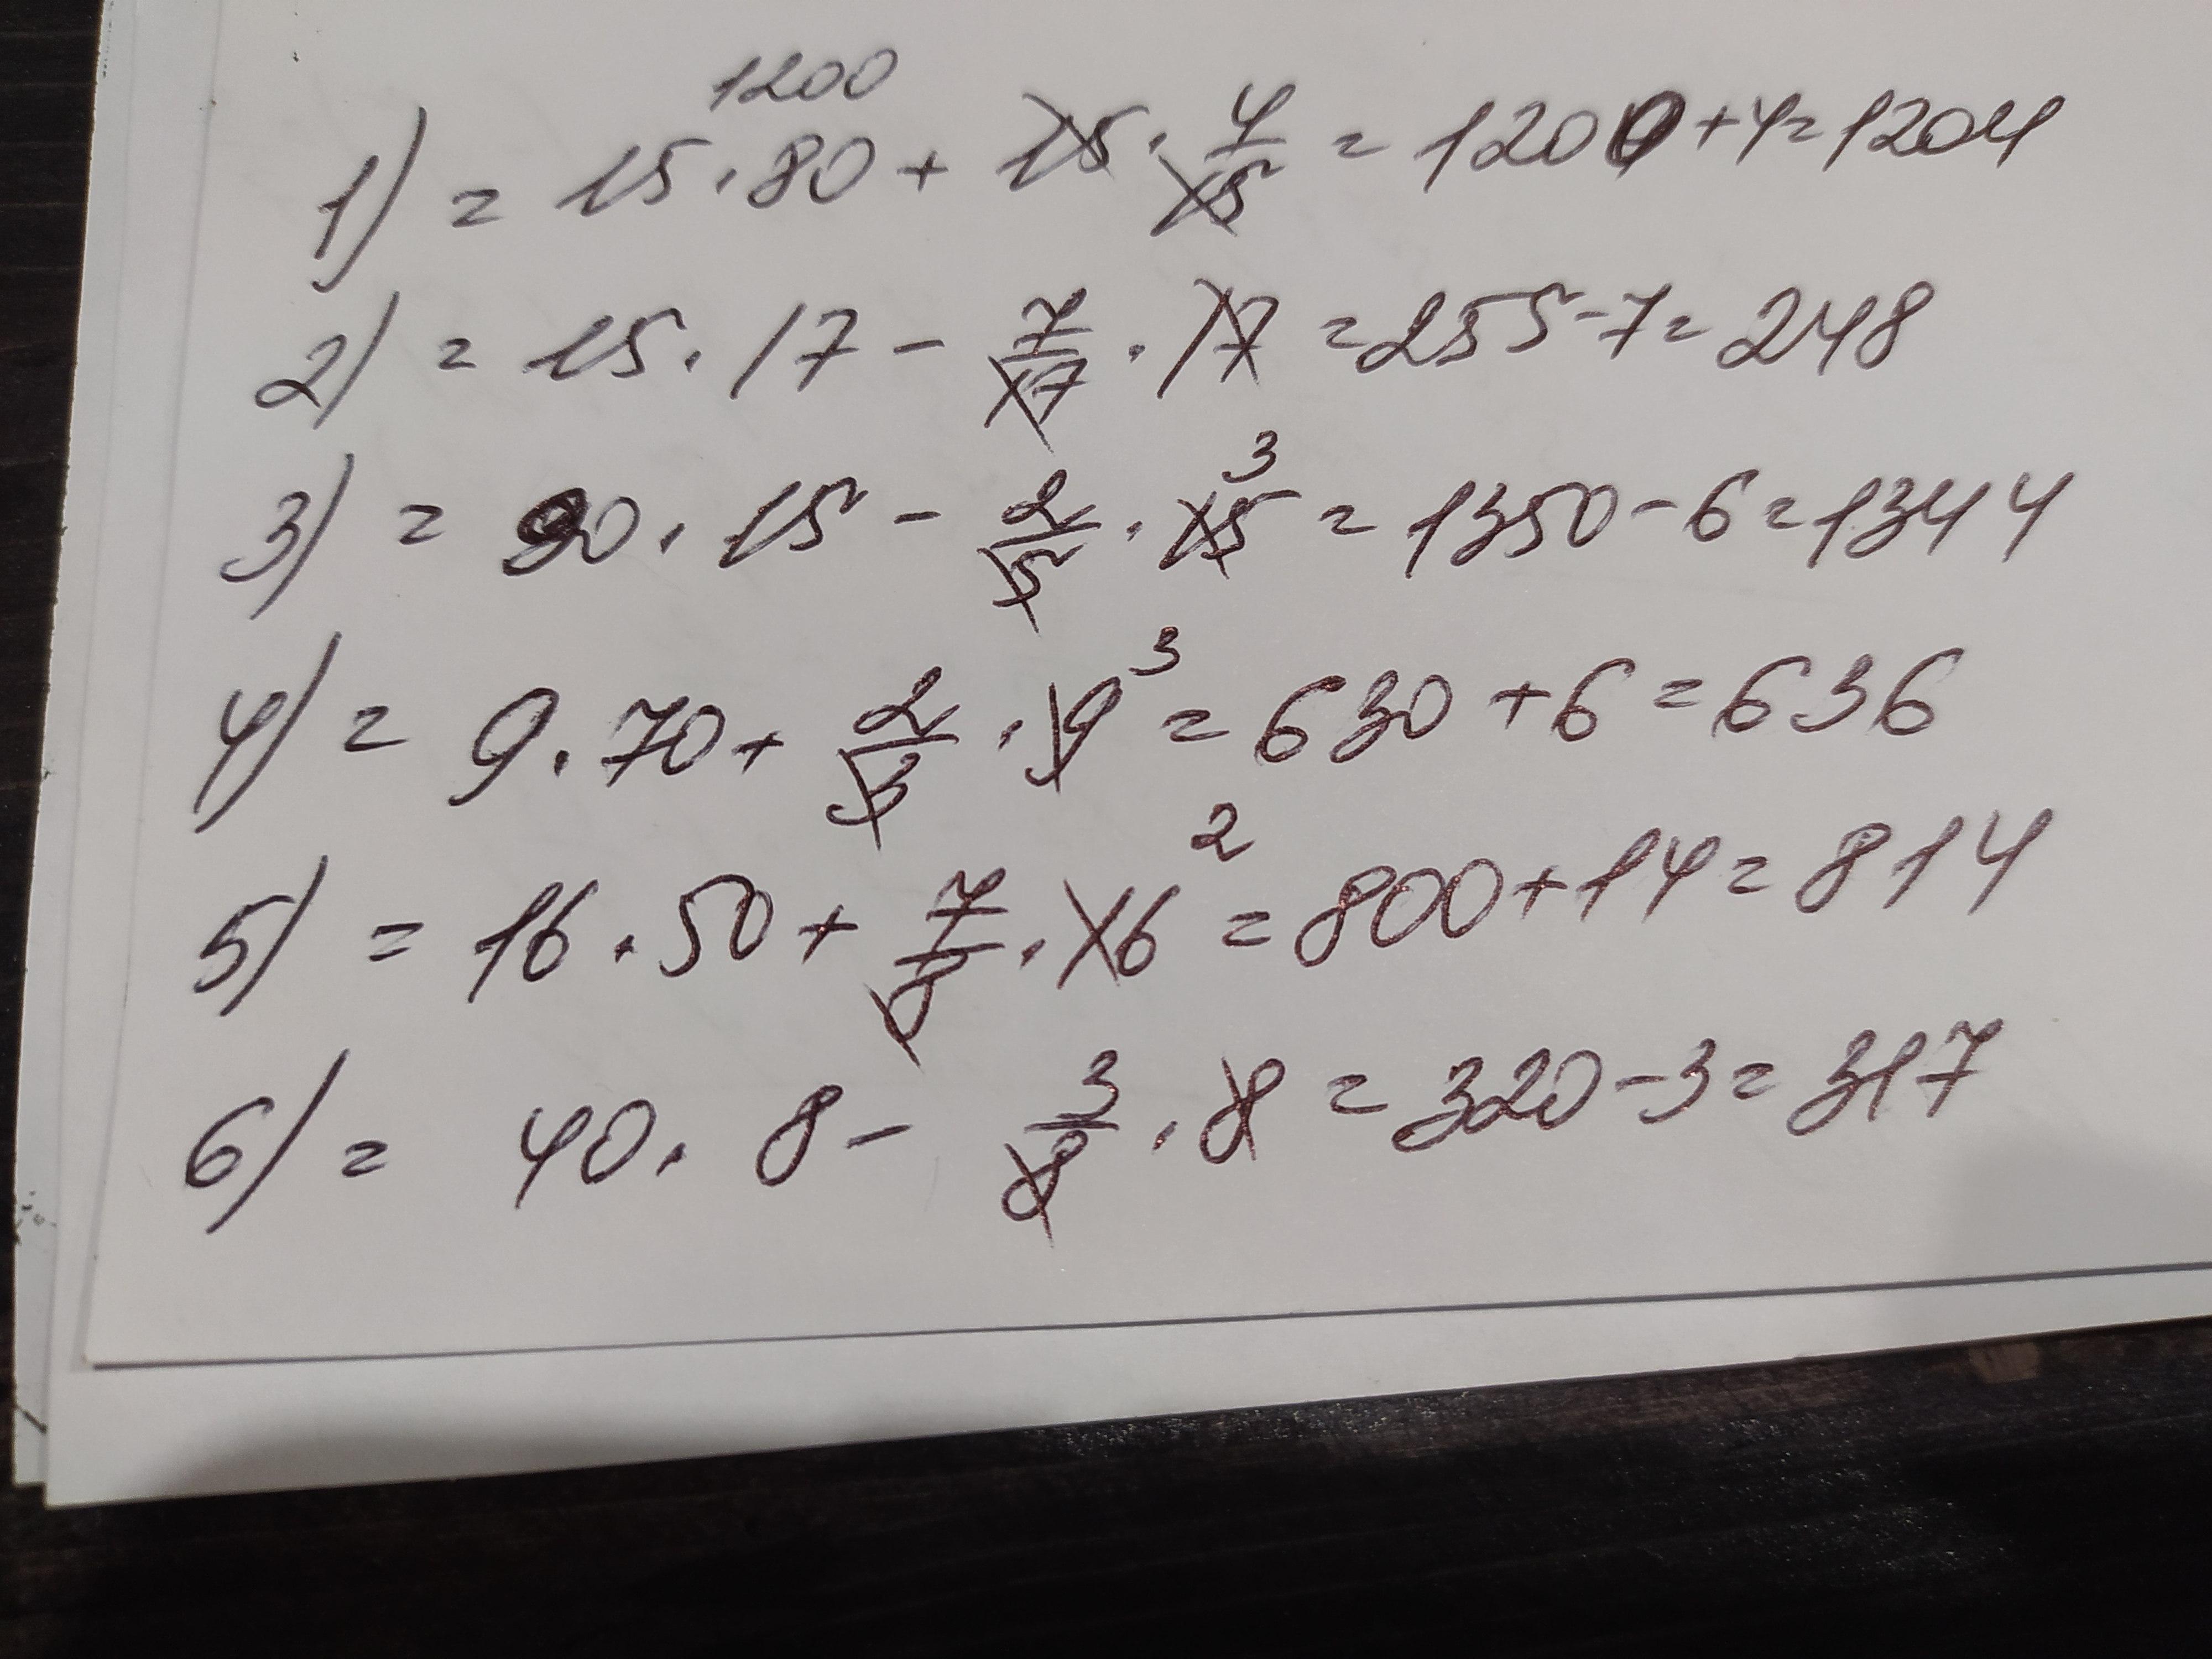 1200
1) = 15·80 + 15·4/15 = 1200+4=1204
2) = 15·17 - 7/17·17 = 255-7=248
3) = 90·15 - 2/5·15 3 = 1350-6=1344
4) = 9·70 + 2/3·9 3 = 630+6=636
5) = 16·50 + 7/8·16 2 = 800+14=814
6) = 40·8 - 3/8·8 = 320-3=317